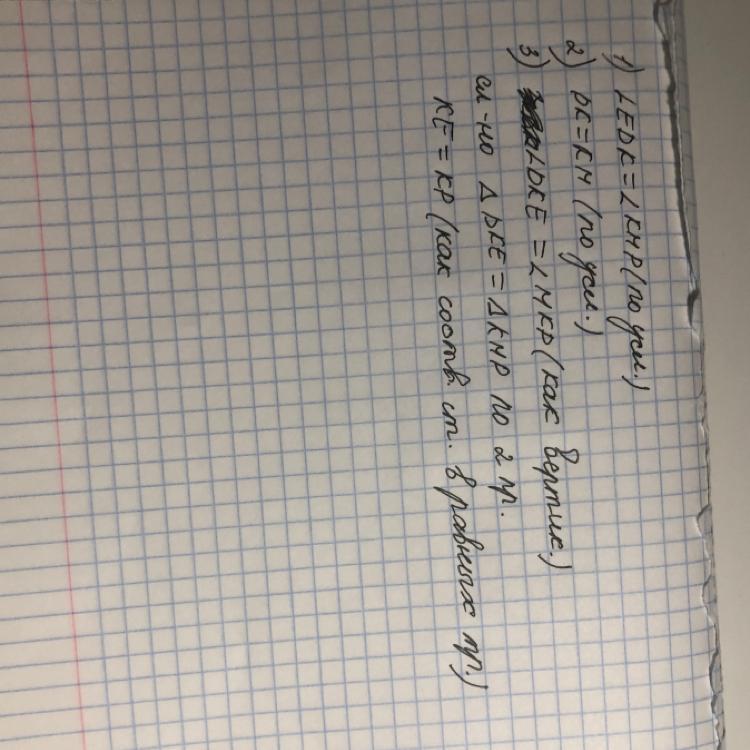 1) ∠EDK=∠KMP(по усл.)
2) DK=KM (по усл.)
3) ∠DKE=∠MKP(как вертик.)
сл-но ΔDKE=ΔKMP по 2 пр.
KE=KP(как соотв. ст. в равных тр.)